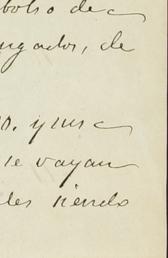 bolso de
ugados, de
o. y us
le vayan
les siendo